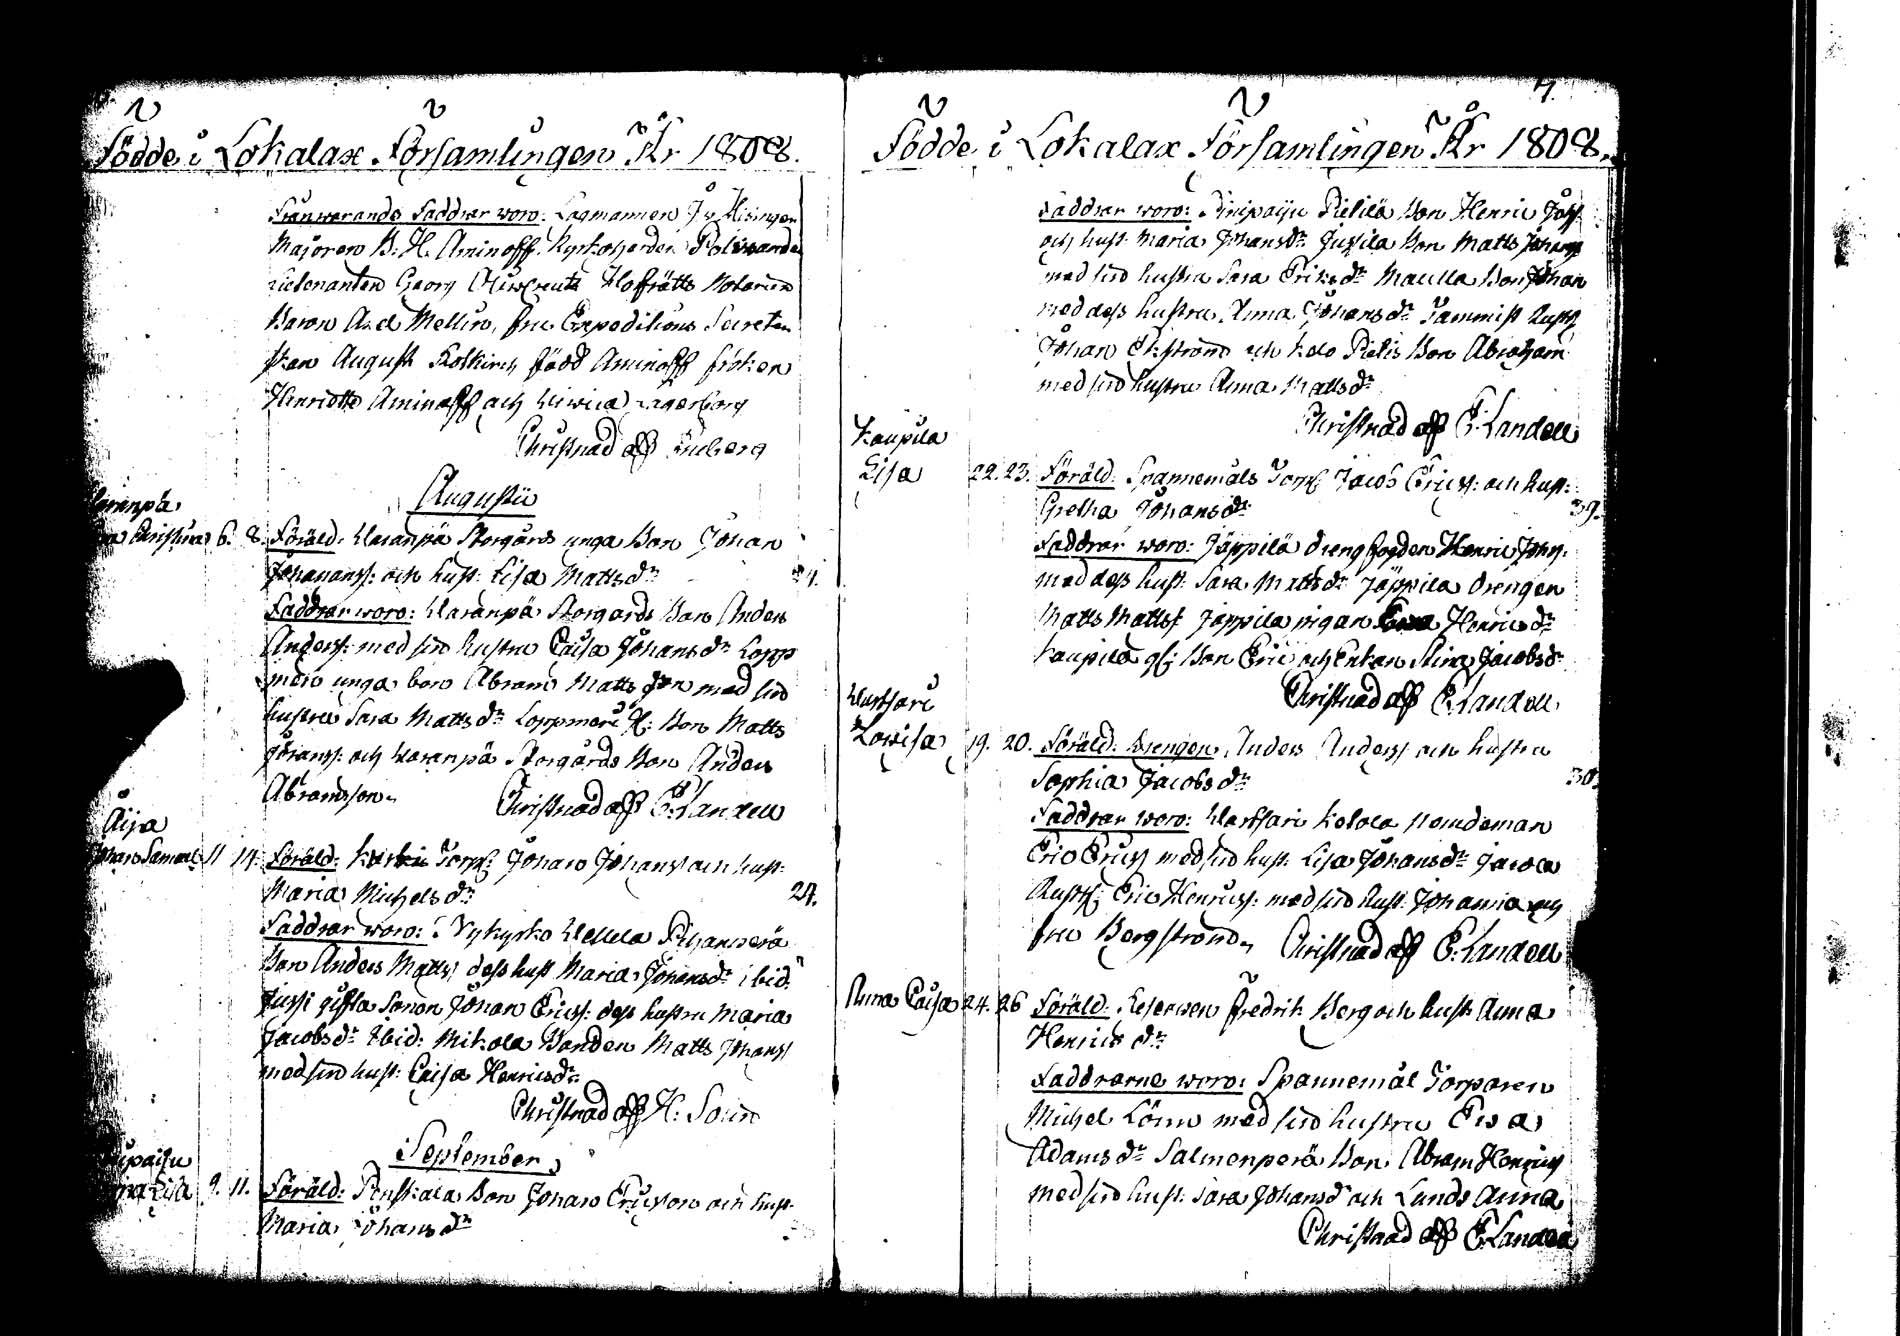 Födde i Lokalax Församlingen År 1808.
Frånwarande Faddrar woro: Lagmannen J. v. Hisinger
Majoren B: H. Aminoff. Kyrkoherden Polviander
Lieutenanten Georg Hofrätts Notarien
Baron Axel Mellin, fru Expeditions Secreter
skan August född Aminoff fröken
Henriette Aminoff och Lowica Lagerborg
Christnad aff
Augustii
Haranpä
Christina 6. 8. Föräld: Haranpä Storgårds unga Bon Johan
Johanss: och hust: Lisa Matts dr
Faddrar woro: Haranpä Storgårds Bon Anders
Anderss: med sin hustru Caisa Johans dr Lopp
meri unga bon Abram Matts son med sin
hustru Sara Matts dr Loppmeri gl: Bon Matts
Göranss: och Haranpä Storgårds Bon Anders
Abramsson.
Christnad aff E: Landell
Äijä
Johan Samuel 11 14. Föräld: Torp: Johan Johanss och hust:
Maria Michels dr 24.
Faddrar woro: Nykyrko Wellila
Bon Anders Matts: dess hust Maria Johans dr ibid:
Jussi giffta Sonon Johan Ericss: dess hustru Maria
Jacobs dr Ibid: Mikola Bonden Matts Johanss
med sin hust: Caisa Henrics dr
Christnad aff H: Solin
September
Lisa 9. 11. Föräld: Penskala Bon Johan Ericsson och hust:
Maria Johans dr
7.
Födde i Lokalax Församlingen År 1808.
Faddrar woro: Pinipaiju Pietilä Bon Henric Johss
och hust: Maria Johans dr Jussila Bon Matts Johanss
med sin hustru Sara Eriks dr Bon Johan
med dess hustru Anna Johans dr Tammist Rusth
Johan Ekström och Pietis Bon Abraham
med sin hustru Anna Matts dr
Christnad aff E: Landell
Kaupila
Lisa 22. 23. Föräld: Spannemäls Torp: Jacob Ericss: och hust:
Gretha Johans dr 39.
Faddrar woro: Jäppilä drengfogden Henric Johss:
med dess hust: Sara Matts dr Jäppila drengen
Matts Mattss Jäppila pigan Henrics dr
Kaupila gl: Bon Eric och Enkan Stina Jacobs dr
Christnad aff E: Landell
Wartsari
Lowisa 19. 20. Föräld: drengen Anders Anderss och hustru
Sophia Jacobs dr 30.
Faddrar woro: Wartsari Kolola Nemdeman
Eric Ericss med sin hust: Lisa Johans dr
Rusth: Eric Henricss: med sin hust: Johanna och
fru Bergström.
Christnad aff E: Landell
Anna Caisa 24. 26 Föräld: Fredrik Berg och hust: Anna
Henrics dr
Faddrarne woro: Spannemäl Torparen
Michel Lönn med sin hustru Ewa
Adams dr Salmenperä Bon Abram Henricss
med sin hust: Sara Johans dr och Lunds Anna
Christnad aff E: Landell